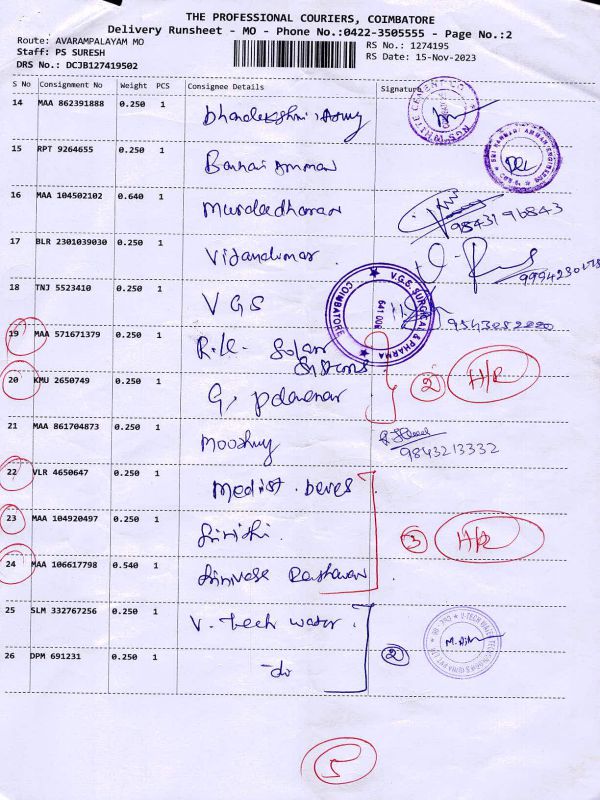 THE PROFESSIONAL COURIERS, COIMBATORE
Delivery Runsheet - MO - Phone No.:0422-3505555 - Page No.:2
Route: AVARAMPALAYAM MO
RS No.: 1274195
Staff: PS SURESH
RS Date: 15-Nov-2023
DRS No.: DCJB127419502
S No Consignment No Weight PCS Consignee Details Signature
14 MAA 862391888 0.250 1
15 RPT 9264655 0.250 1 Bannari Amman
16 MAA 104502102 0.640 1 Muraleedharan
98431 96843
17 BLR 2301039030 0.250 1 Vijayakumar
18 TNJ 5523410 0.250 1 V G S
V.G.S. SURGICAL & PHARMA
COIMBATORE
641 006
19 MAA 571671379 0.250 1 R.K. Solar
Systems
20 KMU 2650749 0.250 1 G.
2 H/R
21 MAA 861704873 0.250 1
9843213332
22 VLR 4650647 0.250 1
23 MAA 104920497 0.250 1
3 H/R
24 MAA 106617798 0.540 1 Srinivasa
25 SLM 332767256 0.250 1 V. tech water.
2
26 DPM 691231 0.250 1 -do
5